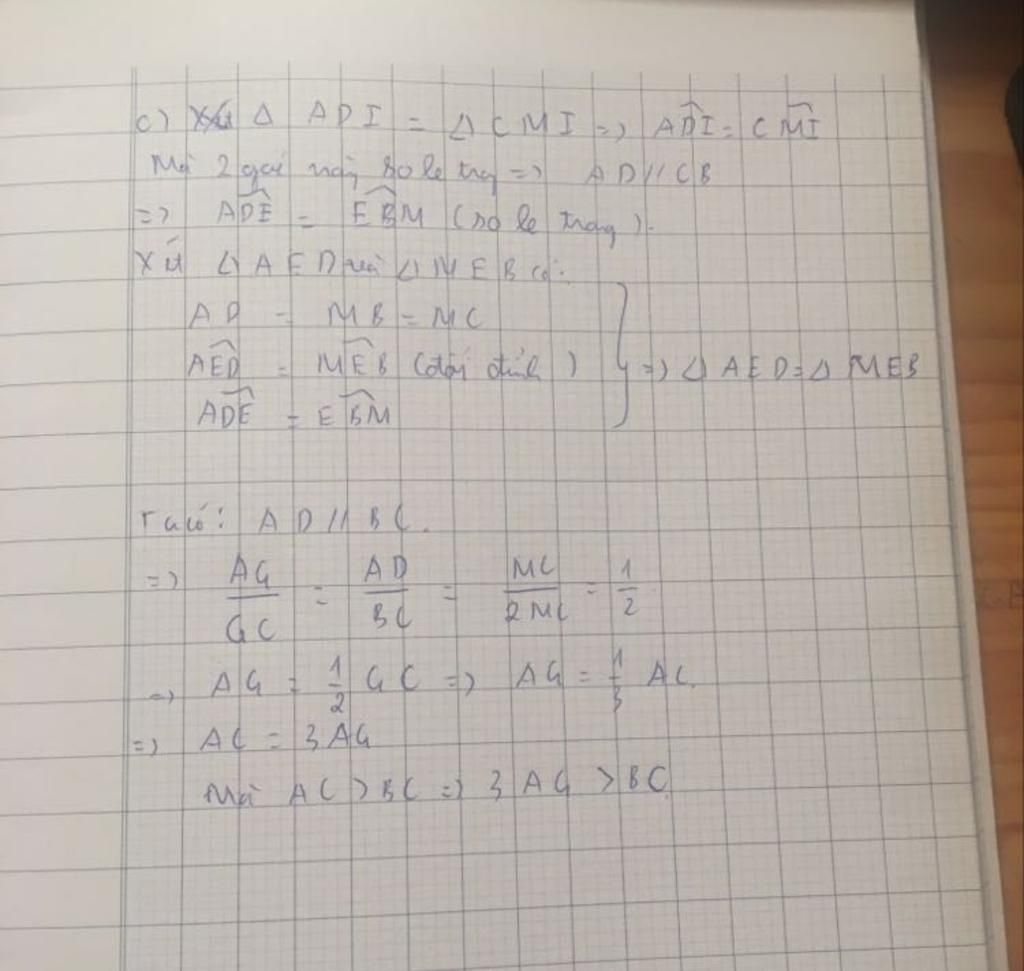 c) Xét Δ ADI = Δ CMI => ADI = CMI
Mà 2 góc này so le trg => AD // CB
=> ADE = EBM (so le trong).
Xét Δ AED và Δ MEB có:
AD = MB = MC
AED = MEB (đối đỉnh) } => Δ AED = Δ MEB
ADE = EBM
Ta có: AD // BC.
=> AG/GC = AD/BC = MC/2MC = 1/2
=> AG = 1/2 GC => AG = 1/3 AC
=> AC = 3AG
Mà AC > BC => 3AG > BC